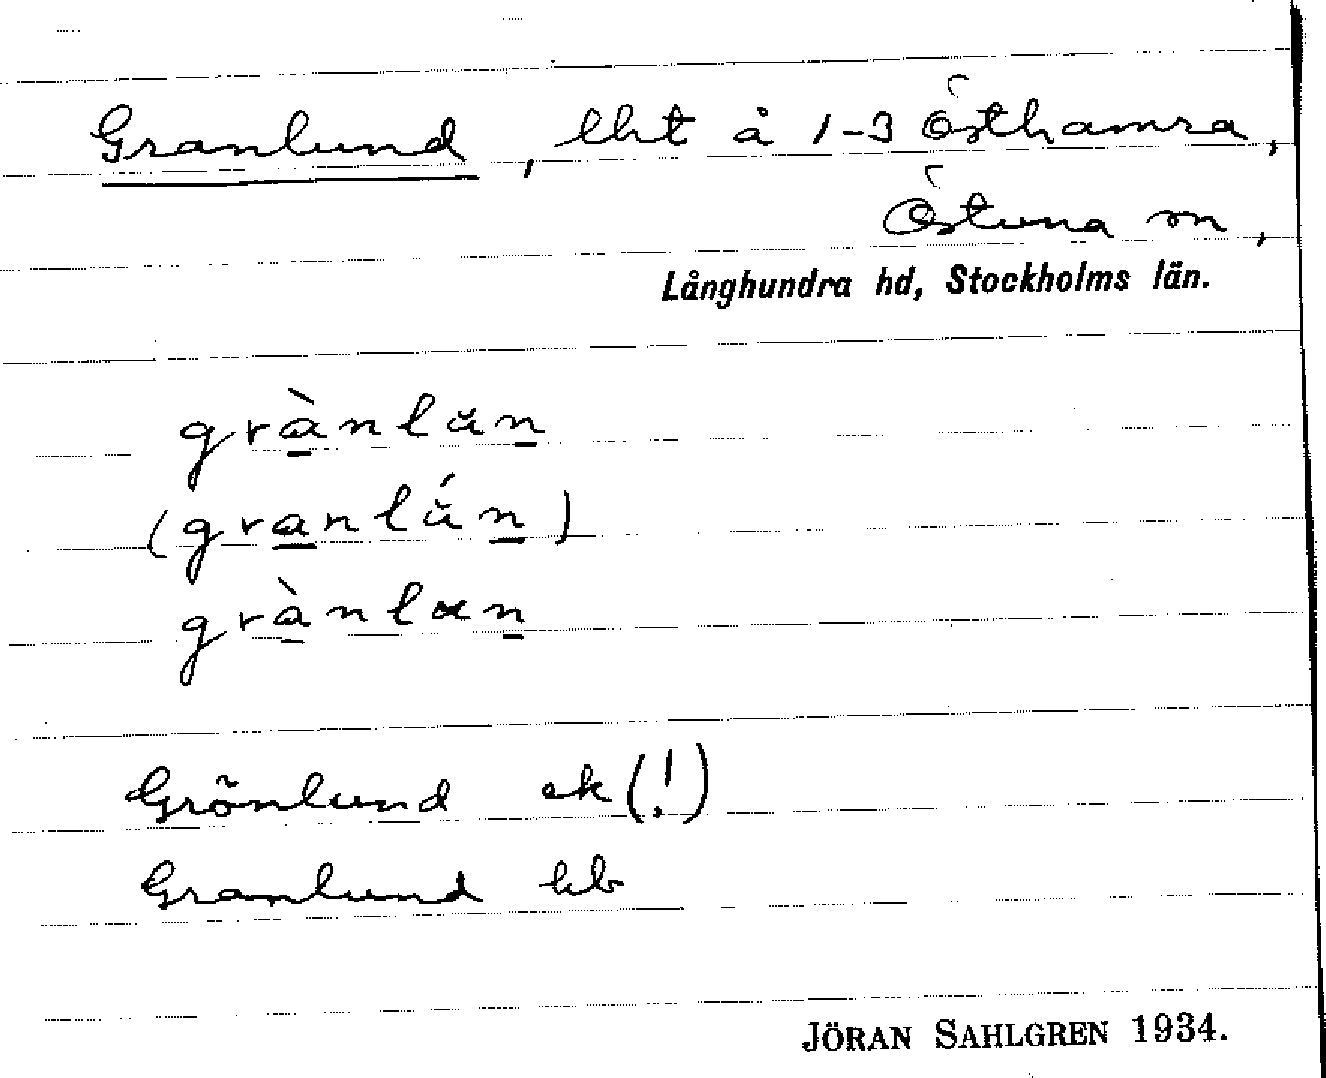 Granlund, lht å 1-3 Östhamra,
Östuna sn,
Långhundra hd, Stockholms län.
grànlăn
(granlắn)
grànlan
Grönlund ek (!)
Granlund kb
JÖRAN SAHLGREN 1934.